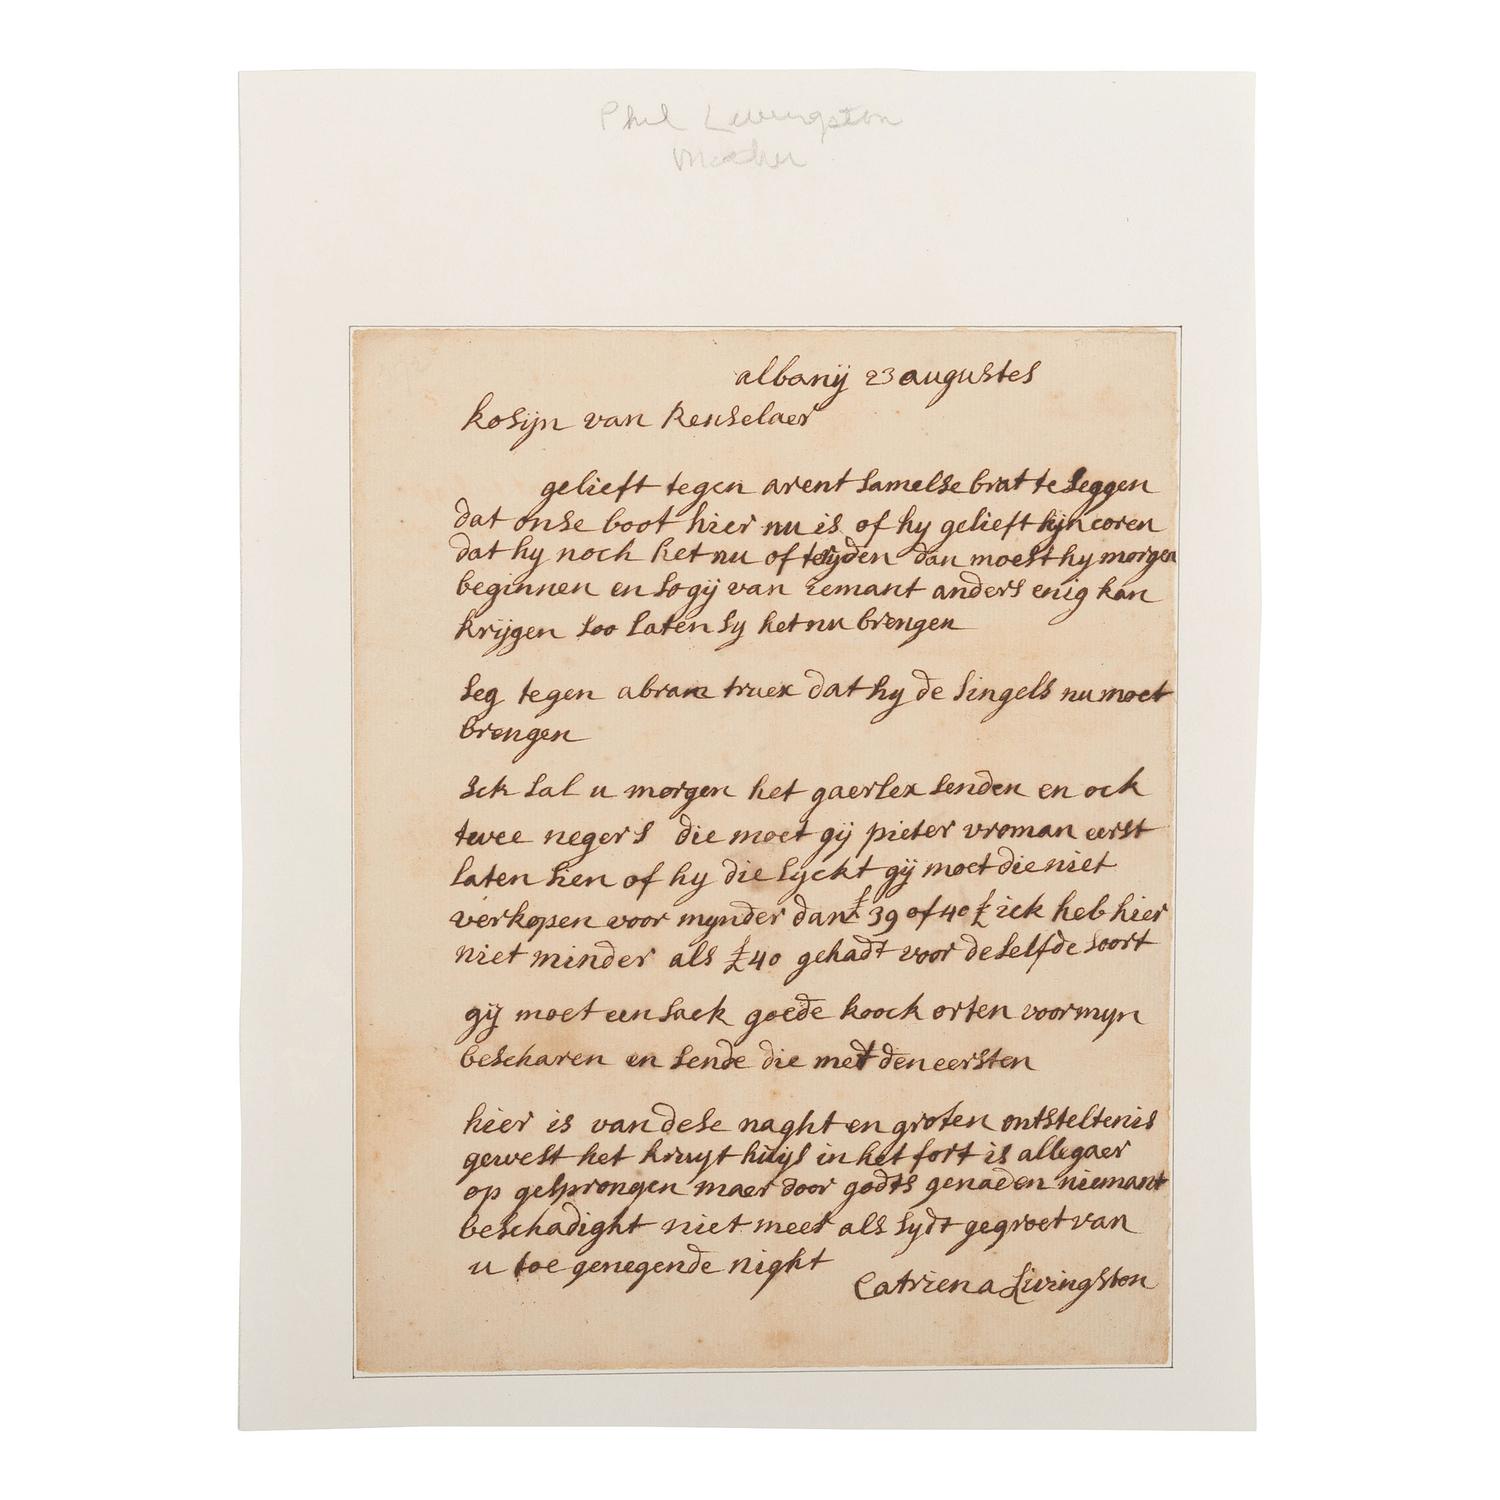 Phil Livingston
Mother
albanij 23 augustes
kosijn van Renselaer
gelieft tegen arent samelse brat te seggen
dat onse boot hier nu is of hy gelieft syn coren
dat hy noch het nu of te syden dan moest hy morgen
beginnen en so gij van iemant anders enig kan
krijgen soo laten sy het nu brengen
seg tegen abram truex dat hy de singels nu moet
brengen
ick sal u morgen het gaerlex senden en ock
twee negers die moet gij pieter vroman eerst
laten sien of hy die lyckt gij moet die niet
verkopen voor mynder dan £ 39 of 40 £ ick heb hier
niet minder als £ 40 gehadt voor de selfde soort
gij moet een sack goede koock orten voor myn
bescharen en sende die met den eersten
hier is van dese naght en groten ontsteltenis
gewest het kruyt huijs in het fort is allegaer
op gesprongen maer door godts genaeden niemant
beschadight niet meer als sydt gegroet van
u toe genegende night
Catriena Livingston